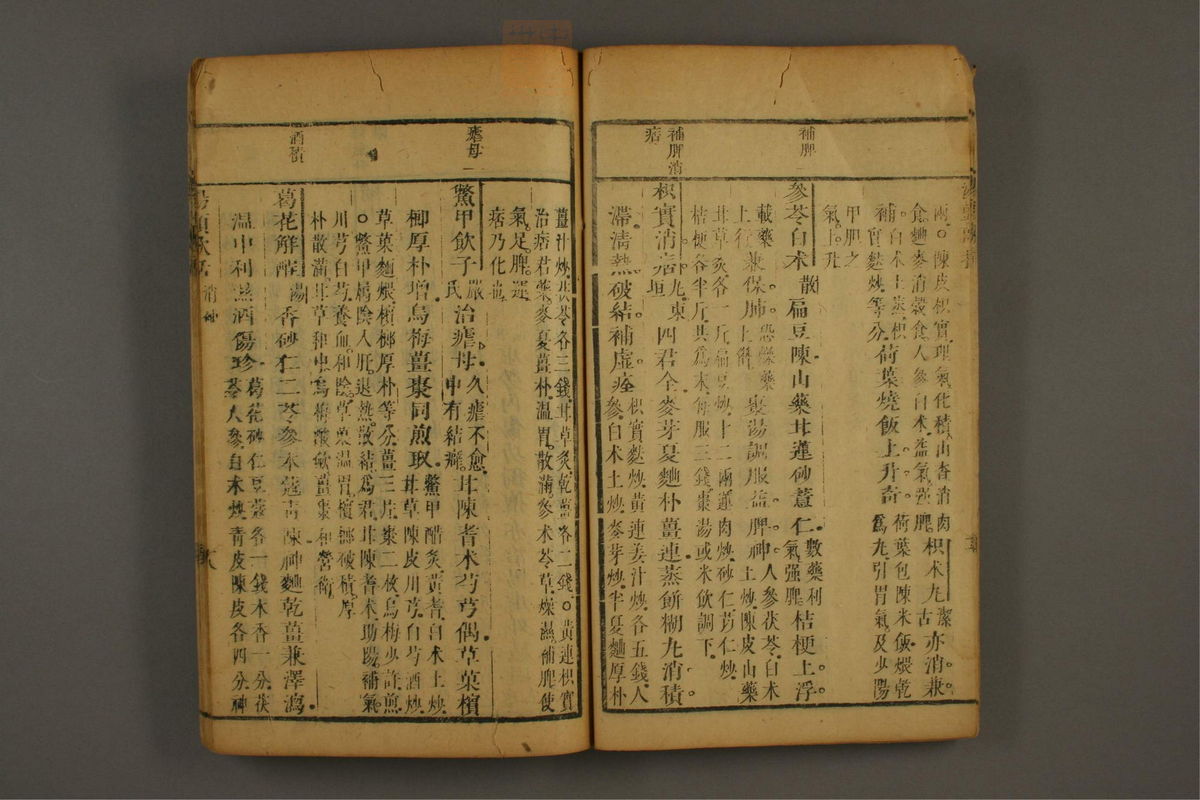 補脾
補脾消
痞
兩。○陳皮枳實理氣化積。山查消肉
食。麯麥消穀食。人參白术益氣強脾。枳术丸潔古亦消兼
補。白术土蒸枳實麩炒等分荷葉燒飯上升奇。荷葉包陳米飯煨乾
爲丸引胃氣及少陽
甲膽之
氣上升
參苓白术散扁豆陳山藥甘蓮砂薏仁。數藥利氣强脾桔梗上浮
載藥上行兼保肺。恐燥藥上僭棗湯調服益脾神。人參茯苓白术土炒陳皮山藥
甘草炙各一斤扁豆炒十二兩蓮肉炒砂仁苡仁炒
桔梗各半斤共爲末每服三錢棗湯或米飲調下
枳實消痞丸東垣四君全。麥芽夏麯朴薑連。蒸餅糊丸消積
滯。清熱破結補虛痊。枳實麩炒黃連姜汁炒各五錢人
參白术土炒麥芽炒半夏麯厚朴
瘧母
酒積
薑汁炒茯苓各三錢甘草炙乾薑各二錢○黃連枳實
治痞君藥麥夏薑朴溫胃散滿參术苓草燥濕補脾使
氣足脾運
痞乃化也
鱉甲飲子嚴氏治瘧母。久瘧不愈中有結癖甘陳耆术芍芎偶。草菓檳
榔厚朴增。烏梅薑棗同煎取。鱉甲醋炙黃耆白术土炒
甘草陳皮川芎白芍酒炒
草菓麵煨檳榔厚朴等分薑三片棗二枚烏梅少許煎
○鱉甲屬陰入肝退熱散結爲君甘陳耆术助陽補氣
川芎白芍養血和陰草菓溫胃檳榔破積厚
朴散滿甘草和中烏梅酸斂薑棗和營衛
葛花解酲湯香砂仁。二苓參术蔻青陳。神麯乾薑兼澤瀉。
溫中利濕酒傷珍。葛花砂仁豆蔻各一錢木香一分茯
苓人參白术炒青皮陳皮各四分神
湯頭歌括